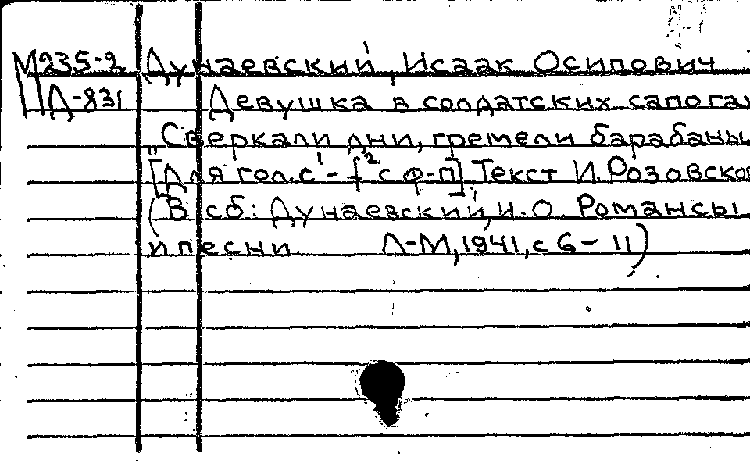 М235-2 Дунаевский, Исаак Осипович
Д-831 Девушка в солдатских сапога
"Сверкали дни, гремели барабаны
[Для гол. с¹-f² с ф-п]. Текст И. Розовско
(В сб: Дунаевский, И.О. Романсы
и песни Л-М, 1941, с 6-11)